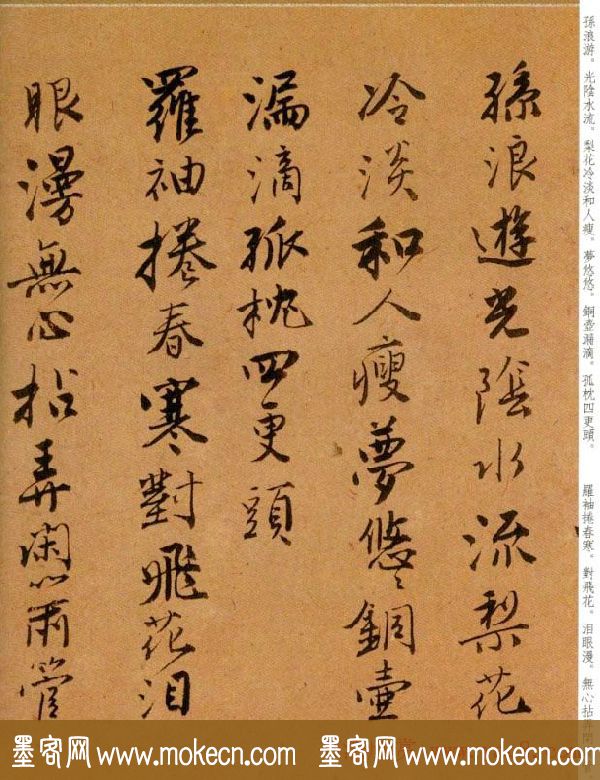 孫浪游。光陰水流。梨花冷淡和人瘦。夢悠悠。銅壺漏滴。孤枕四更頭。
羅袖捲春寒。對飛花。泪眼漫。無心拈弄閑
孫浪遊光陰水流梨花
冷淡和人瘦夢悠〻銅壺
漏滴孤枕四更頭
羅袖捲春寒對飛花泪
眼漫無心拈弄閑簫管
墨客网www.mokecn.com 墨客网www.mokecn.com